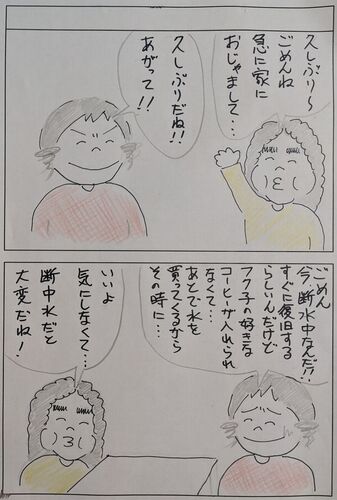 久しぶり〜
ごめんね
急に家に
おじゃまして・・・
久しぶりだね!!
あがって!!
ごめん
今、断水中なんだ!?
すぐに復旧する
らしいんだけど
フク子の好きな
コーヒーが入れられ
なくて・・・
あとで水を
買ってくるから
その時に・・・
いいよ
気にしなくて・・・
断中水だと
大変だね!